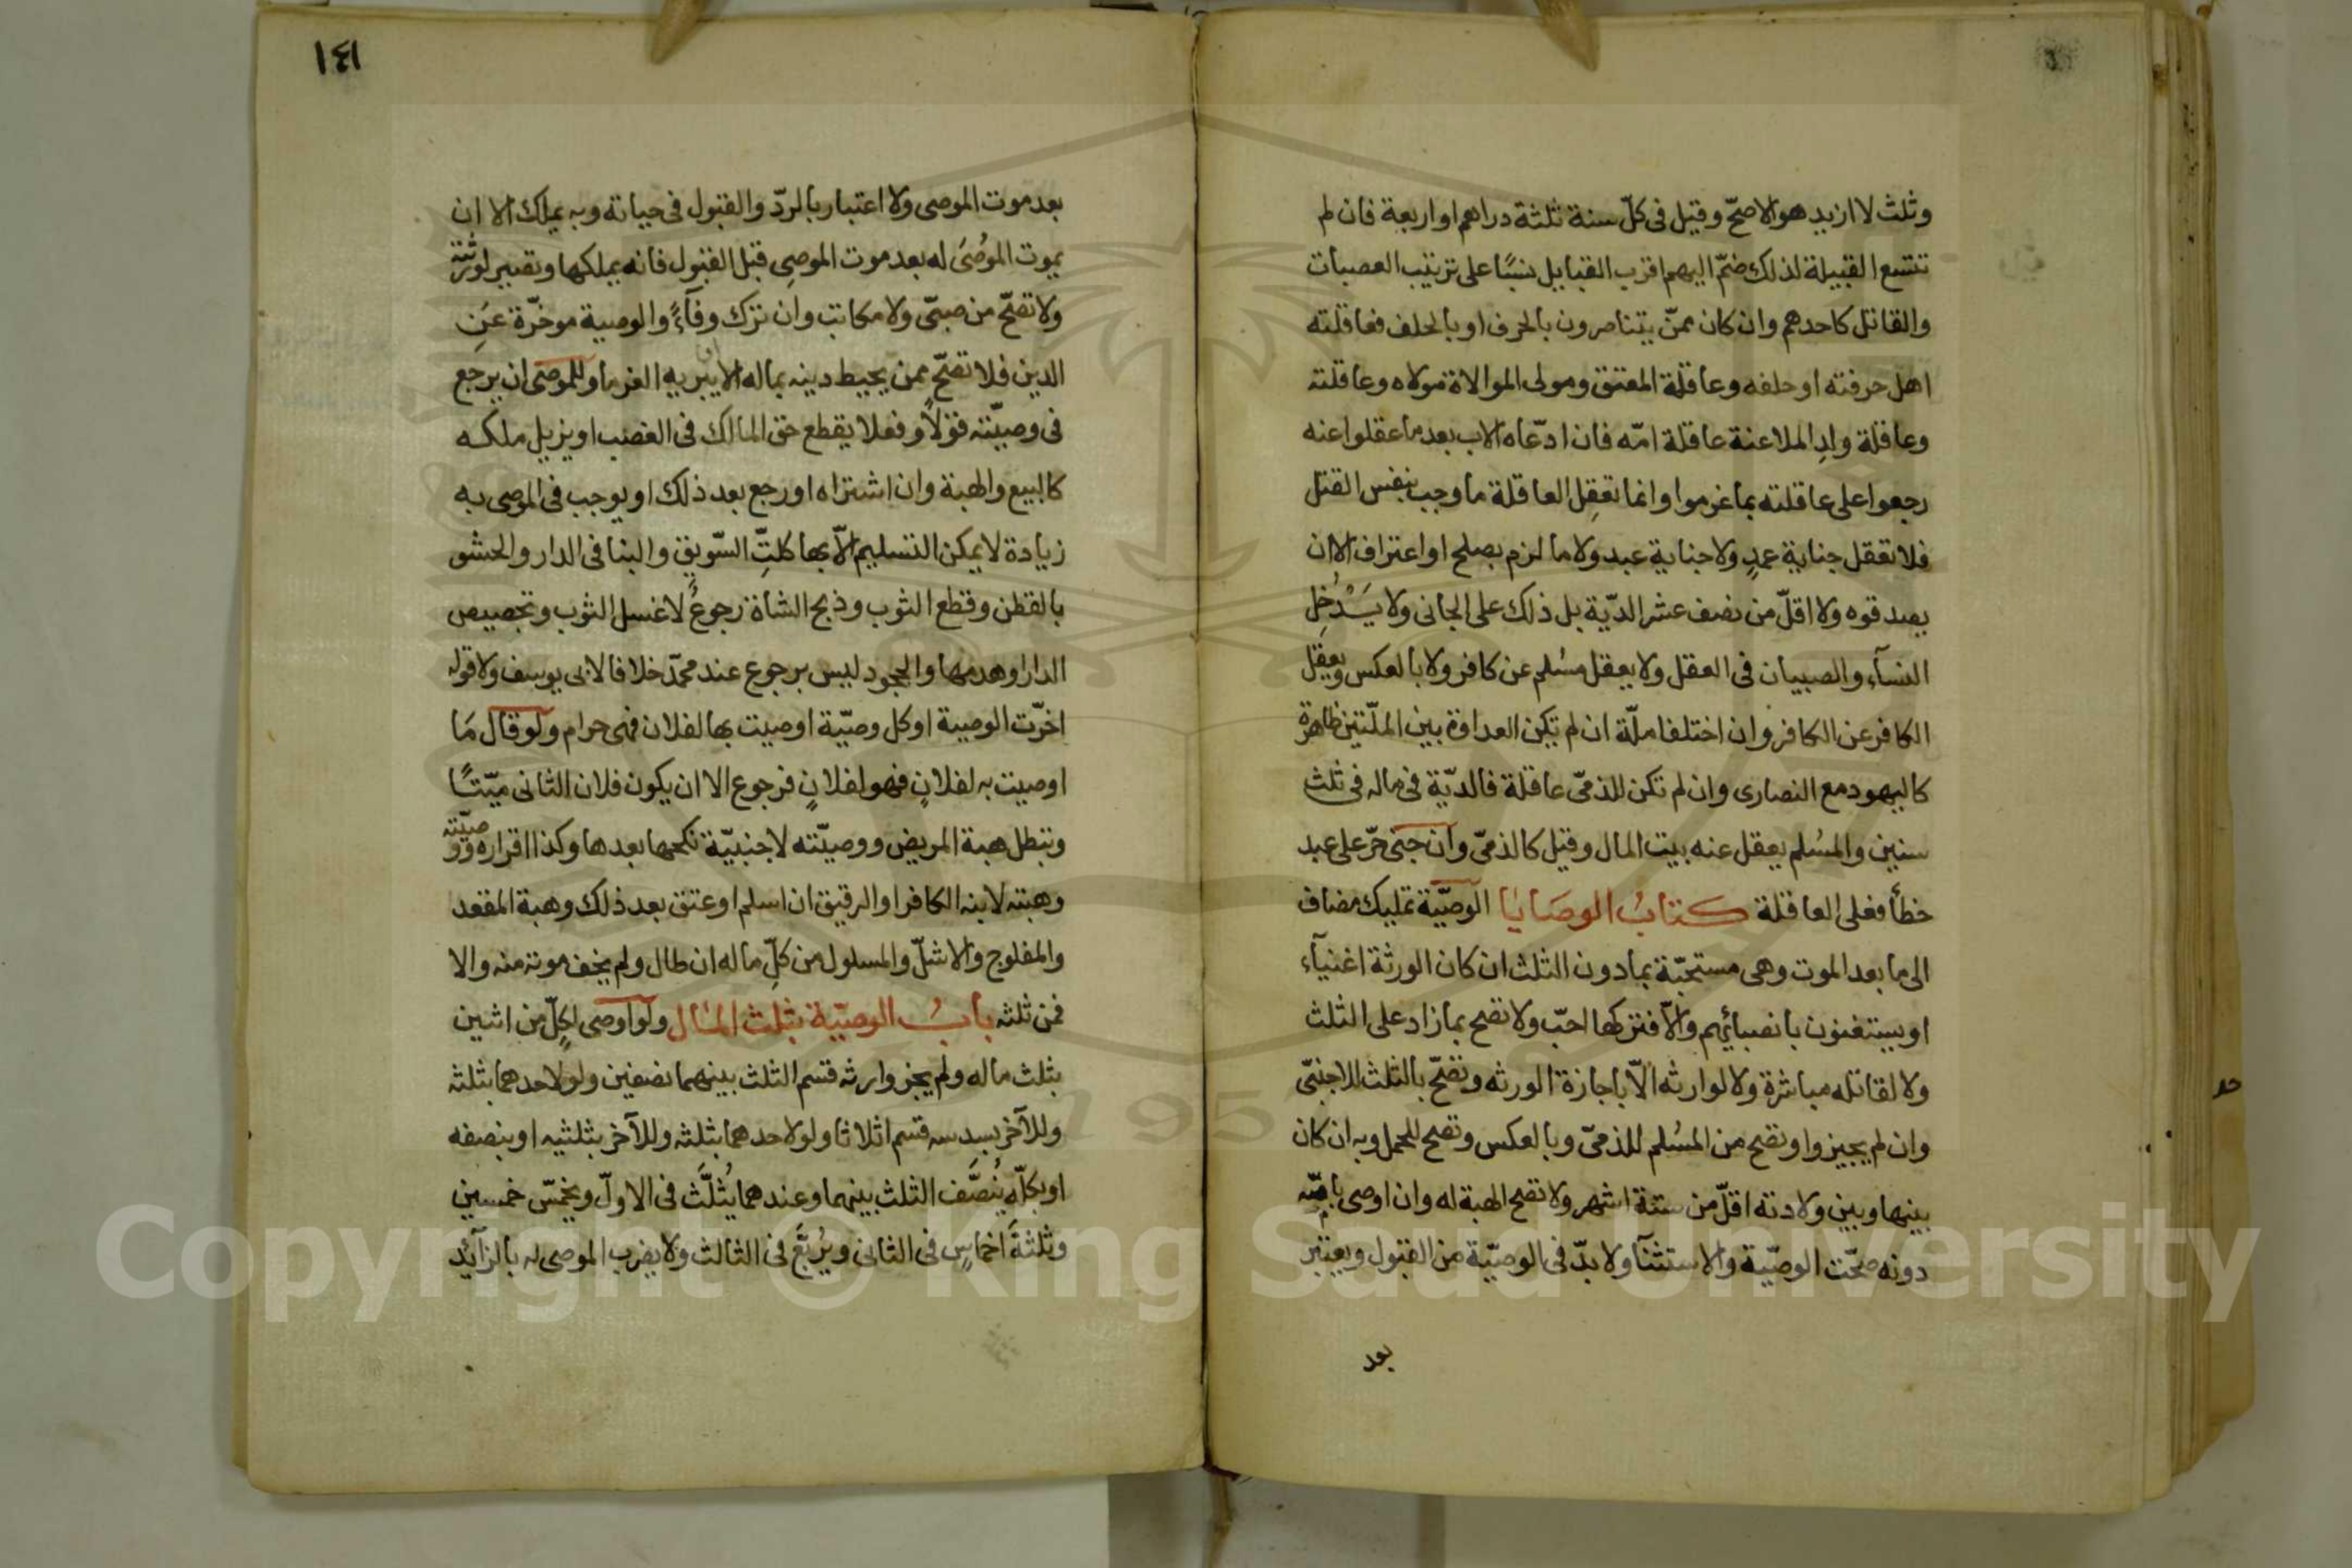 وثلث لا ازيد هو الاصحّ وقيل فى كلّ سنة ثلثة دراهم او اربعة فان لم
تتسع القبيلة لذلك ضمّ اليهم اقرب القبايل نسبًا على ترتيب العصبات
والقاتل كاحدهم وان كان ممنّ يتناصرون بالحرف او بالحلف فعاقلته
اهل حرفته او حلفه وعاقلة المعتق ومولى الموالاة مولاه وعاقلته
وعاقلة ولدِ الملاعنة عاقلة امّه فان ادّعاه الاب بعد ما عقلوا عنه
رجعوا على عاقلته بما غرموا وانما تعقِل العاقلة ما وجب بنفس القتل
فلا تعقل جناية عمدٍ ولا جناية عبد ولا ما لزم بصلح او اعتراف الا ان
يصدقوه ولا اقلّ من نصف عشر الديّة بل ذلك على الجانى ولا يَدْخل
النسآء والصبيان فى العقل ولا يعقل مسُلم عن كافر ولا بالعكس ويعقل
الكافر عن الكافر وان اختلفا ملّة ان لم تكن العداوة بين الملّتين ظاهرة
كاليهود مع النصارى وان لم تكن للذمىّ عاقلة فالديّة فى ماله فى ثلث
سنين والمسُلم يعقل عنه بيت المال وقيل كالذمىّ وان جنى حرّ على عبد
خطأ فعلى العاقلة كتابُ الوصَايا الوصيّة تمليك مضاف
الى ما بعد الموت وهى مستحبّة بما دون الثلث ان كان الورثة اغنيآء
او يستغنون بانصبائهم والاّ فتركها احبّ ولا تصح بما زاد على الثلث
ولا لقاتله مباشرة ولا لوارثه الاّ باجازة الورثه وتصحّ بالثلث للاجنبىّ
وان لم يجيزوا وتصح من المسُلم للذمىّ وبالعكس وتصح للحمل وبه ان كان
بينها وبين ولادته اقلّ من ستة اشهر ولا تصح الهبة له وان اوصى بامّه
دونه صحّت الوصيّة والاستثنآ ولا بدّ فى الوصيّة من القبول ويعتبر
بعد
١٤١
بعد موت الموصى ولا اعتبار بالردّ والقبول فى حياته وبه يملك الا ان
يموت الموُصَى له بعد موت الموصِى قبل القبول فانه يملكها وتصير لورثته
ولا تصحّ من صبىّ ولا مكاتب وان ترك وفآءً والوصية موخّرة عَنِ
الدين فلا تصحّ ممن يحيط دينه بماله الا ان يبريه الغرما وللموصى ان يرجع
فى وصيّته قولاً وفعلا يقطع حق المالك فى الغصب او يزيل ملكه
كالبيع والهبة وان اشتراه او رجع بعد ذلك او يوجب فى الموصى به
زيادة لا يمكن التسليم الاّ بها كلتِّ السّويق والبنا فى الدار والحشو
بالقطن وقطع الثوب وذبح الشاة رجوعٌ لا غسل الثوب وتجصيص
الدار وهدمها والجحود ليس برجوع عند محمّد خلافا لابى يوسف ولا قوله
اخرّت الوصية او كل وصيّة اوصيت بها لفلان فهى حرام ولو قال مَا
اوصيت به لفلانٍ فهو لفلانٍ فرجوع الا ان يكون فلان الثانى ميّتًا
وتبطل هبة المريض ووصيّته لاجنبيّة نكحها بعدها وكذا اقراره ووصيّته
وهبته لابنه الكافر او الرقيق ان اسلم او عتق بعد ذلك وهبة المقعد
والمفلوج والاشلّ والمسلول من كلّ ماله ان طال ولم يخف موته منه والا
فمن ثلثه بابُ الوصيّة بثلث المال ولو اوصى لكلّ من اثنين
بثلث ماله ولم يجز وارثه قسم الثلث بينهما نصفين ولو لاحدهما بثلثه
وللآخر بسدسه قسم اثلاثا ولو لاحدهما بثلثه وللآخر بثلثيه او بنصفه
او بكلّه يُنصَّف الثلث بينهما وعندهما يُثلَّث فى الاولّ ويخمّس خمسين
وثلثةَ اخماسٍ فى الثانى ويُربَّع فى الثالث ولا يضرب الموصى له بالزآيد
Copyright © King Saud University
195